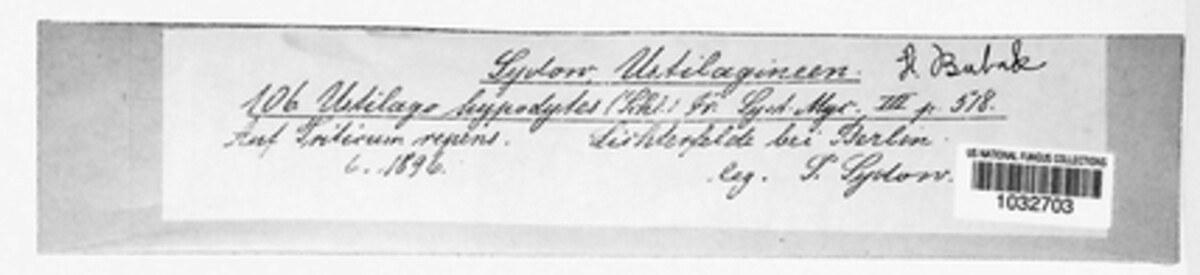 Sydow, Ustilagineen.
Bubak
106 Ustilago hypodytes (Schl.) Fr. Syst. Myc. III p. 518.
Auf Triticum repens. Lichterfelde bei Berlin.
6. 1896. leg. P. Sydow.
US NATIONAL FUNGUS COLLECTIONS
1032703